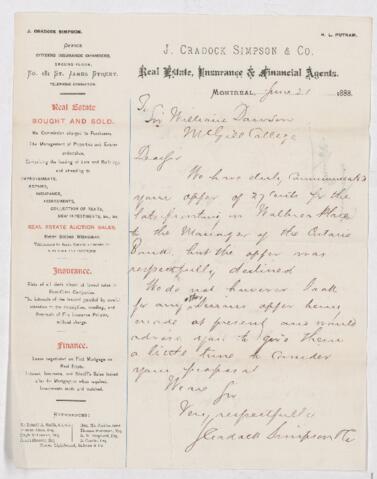 J. CRADOCK SIMPSON.
H. L. PUTNAM.
OFFICE
CITIZENS INSURANCE CHAMBERS,
GROUND FLOOR,
No. 181 St. James Street.
TELEPHONE CONNECTION.
Real Estate
BOUGHT AND SOLD.
No Commission charged to Purchasers.
The Management of Properties and Estates
undertaken,
Comprising the Leasing of
and attending to
IMPROVEMENTS,
REPAIRS,
INSURANCE,
ASSESSMENTS,
COLLECTION OF RENTS,
NEW INVESTMENTS, &c., &c.
REAL ESTATE AUCTION SALES,
EVERY SECOND WEDNESDAY.
Insurance.
Risks of all kinds placed at lowest rates in
First-Class Companies.
The interests of the insured guarded by
without charge.
Finance.
Loans negotiated on First Mortgage on
Real Estate.
REFERENCES:
J. CRADOCK SIMPSON & CO.
Real Estate, Insurance & Financial Agents.
MONTREAL, June 21 1888.
To Sir William Dawson
McGill College
Dear Sir
We have duly communicated
your offer of 27 cents for the
lots fronting on Place
to the Manager of the Ontario
Bank, but the offer was
respectfully declined
We do not however look
for any other offer being
made at present and would
advise you to give them
a little time to consider
your proposal
We are Sir
Very respectfully
J Cradock Simpson & Co